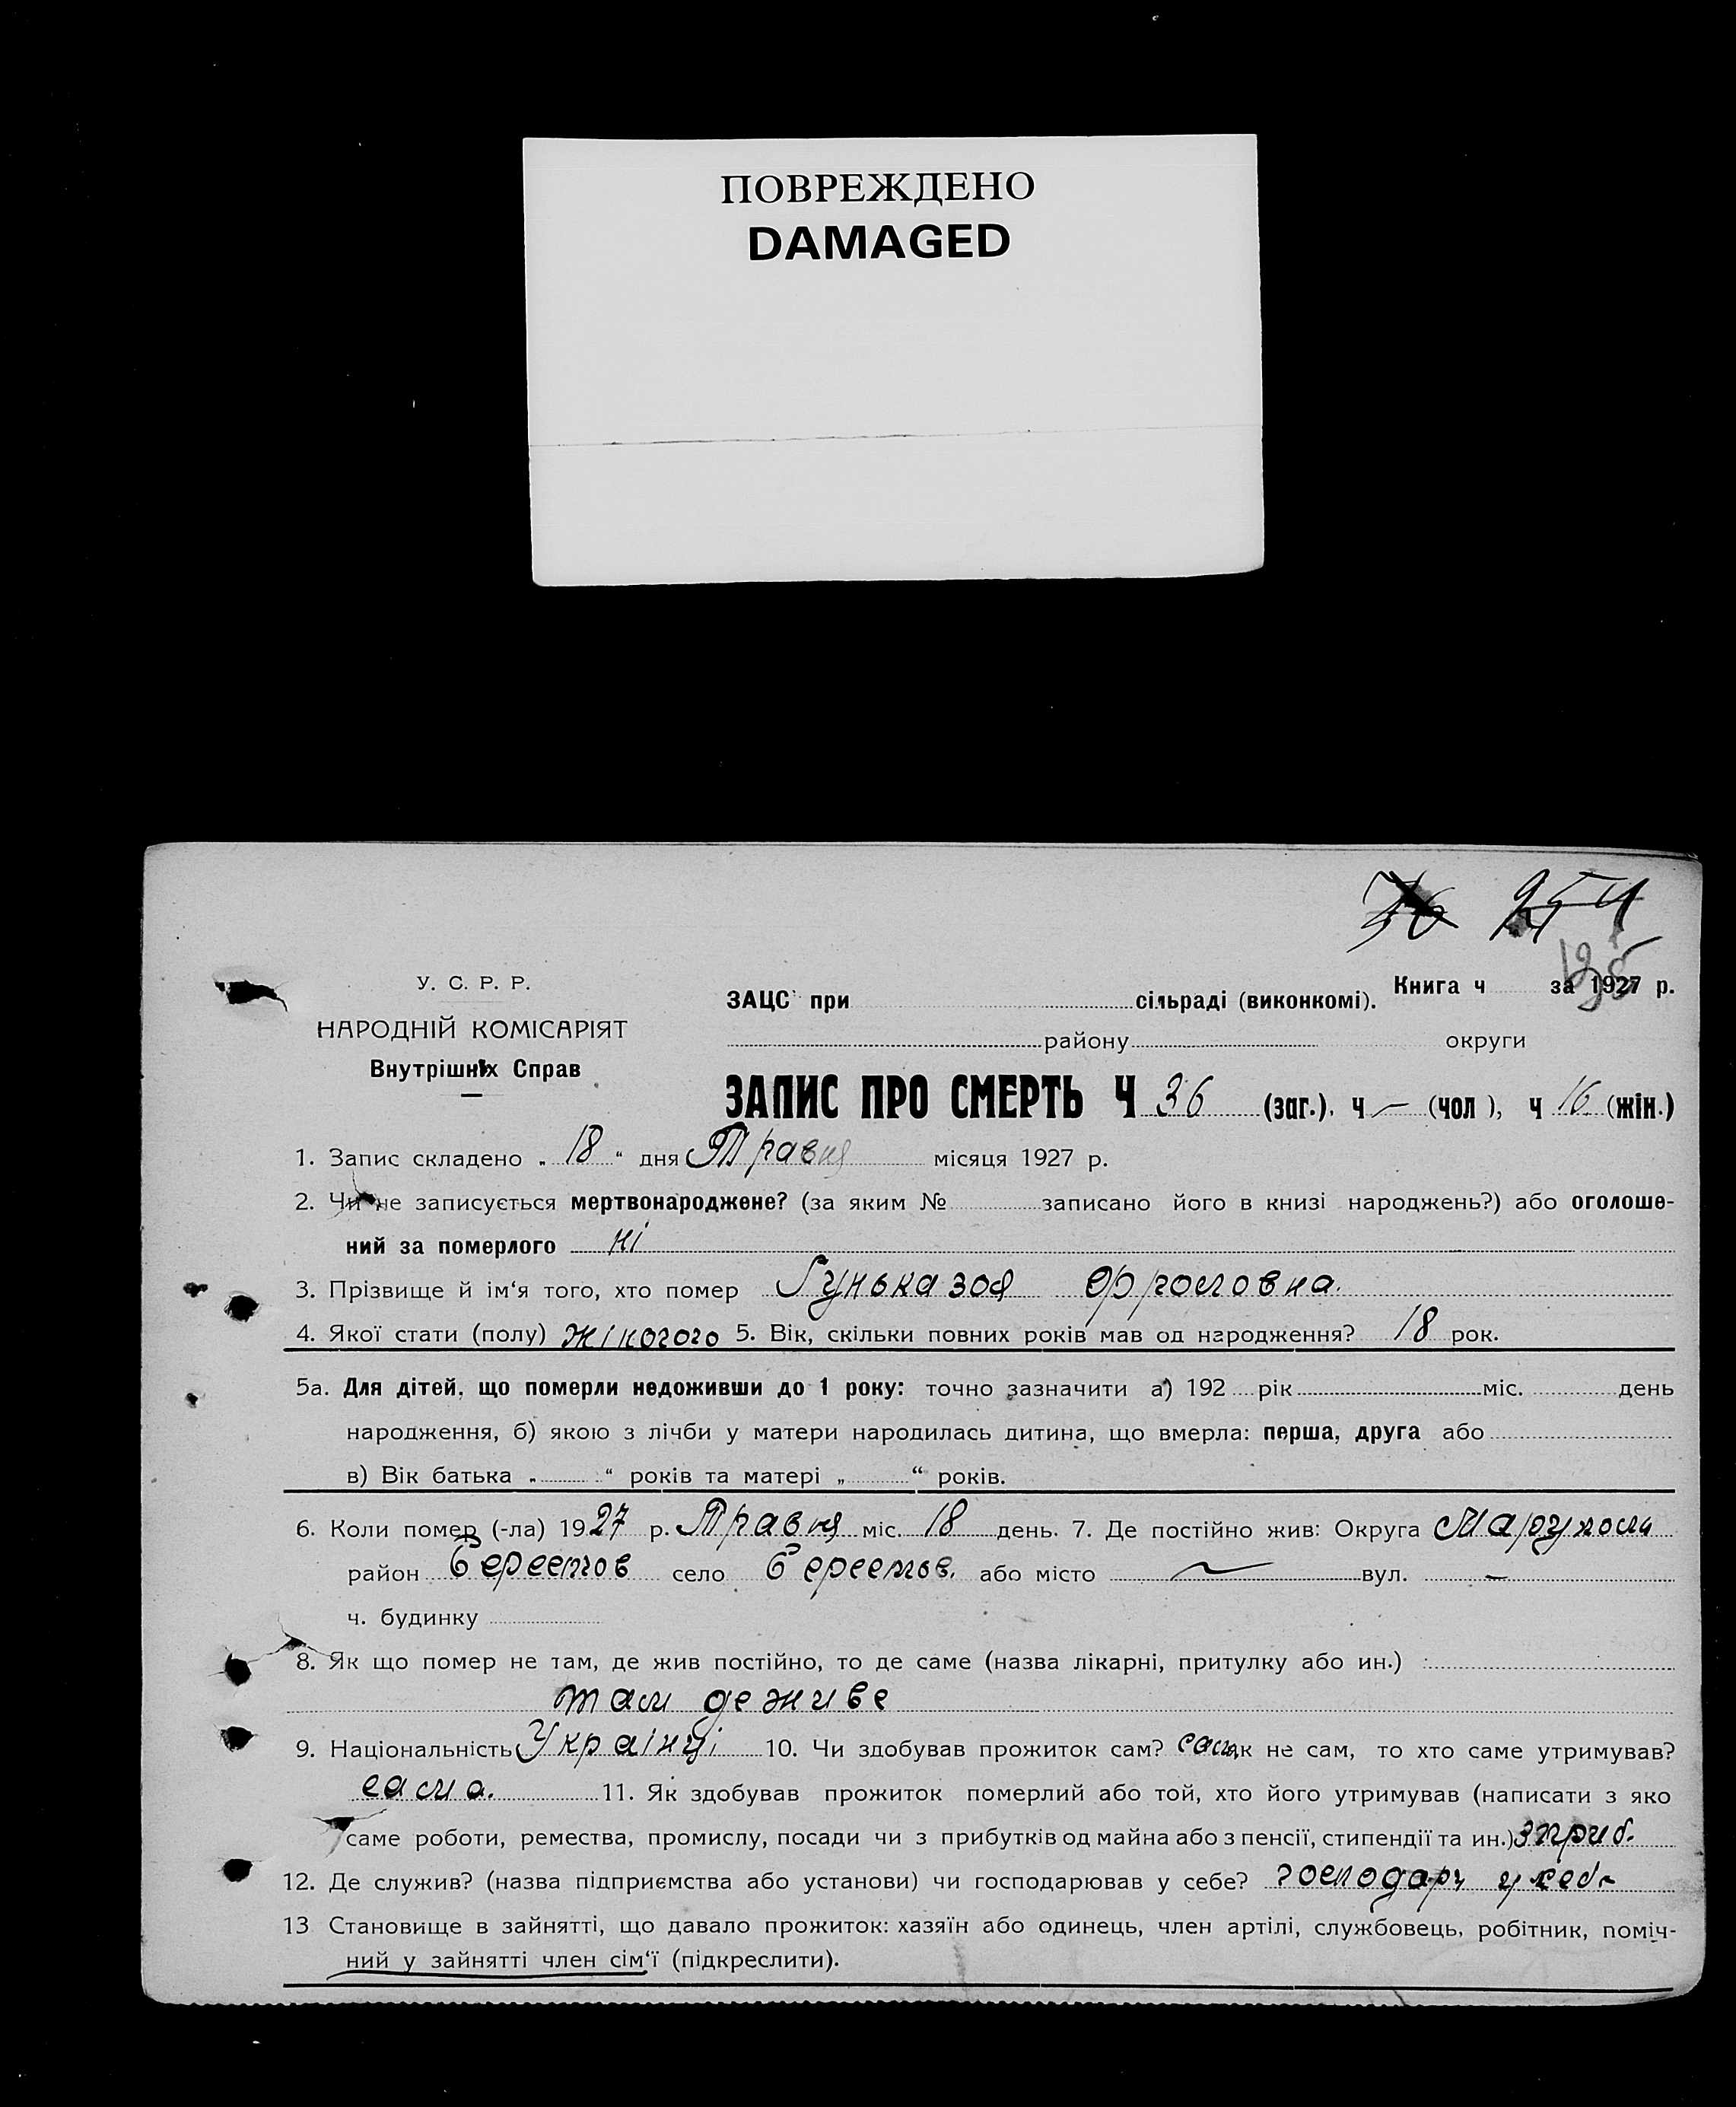 ПОВРЕЖДЕНО
DAMAGED
254
У. С. Р. Р.
НАРОДНІЙ КОМІСАРІЯТ
Внутрішніх Справ
Книга ч за 1927 р.
ЗАЦС при сільраді (виконкомі).
району округи
ЗАПИС ПРО СМЕРТЬ Ч 36 (заг.), ч — (чол), ч 16 (жін.)
1. Запис складено „ 18 “ дня Травня місяця 1927 р.
2. Чи не записується мертвонароджене? (за яким № записано його в книзі народжень?) або оголоше-
ний за померлого ні
3. Прізвище й ім‘я того, хто помер Гунька зоя
4. Якої стати (полу) жіночого 5. Вік, скільки повних років мав од народження? 18 рок.
5а. Для дітей, що померли недоживши до 1 року: точно зазначити а) 192 рік міс. день
народження, б) якою з лічби у матери народилась дитина, що вмерла: перша, друга або
в) Вік батька „ “ років та матері „ “ років.
6. Коли помер (-ла) 1927 р. Травня міс. 18 день. 7. Де постійно жив: Округа Маруполь
район Берестов село Берестов. або місто — вул. —
ч. будинку
8. Як що помер не там, де жив постійно, то де саме (назва лікарні, притулку або ин.)
там де живе
9. Національність Українці 10. Чи здобував прожиток сам? сам, к не сам, то хто саме утримував?
сама. 11. Як здобував прожиток померлий або той, хто його утримував (написати з яко
саме роботи, ремества, промислу, посади чи з прибутків од майна або з пенсії, стипендії та ин.) з приб.
12. Де служив? (назва підприємства або установи) чи господарював у себе? господар у себе
13 Становище в зайнятті, що давало прожиток: хазяїн або одинець, член артілі, службовець, робітник, поміч-
ний у зайнятті член сім‘ї (підкреслити).